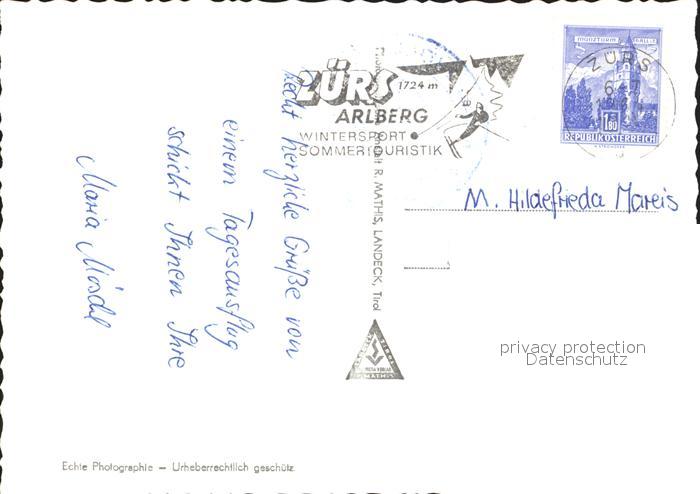 ZÜRS
1724 m
ARLBERG
WINTERSPORT
SOMMERTOURISTIK
MÜNZTURM HALL i.T.
1.80
REPUBLIK ÖSTERREICH
ZÜRS
Recht herzliche Grüße von
einem Tagesausflug
schickt Ihnen Ihre
Maria
R. MATHIS, LANDECK, Tirol
MATHIS
M. Hildefrieda Mareis
privacy protection
Datenschutz
Echte Photographie — Urheberrechtlich geschützt